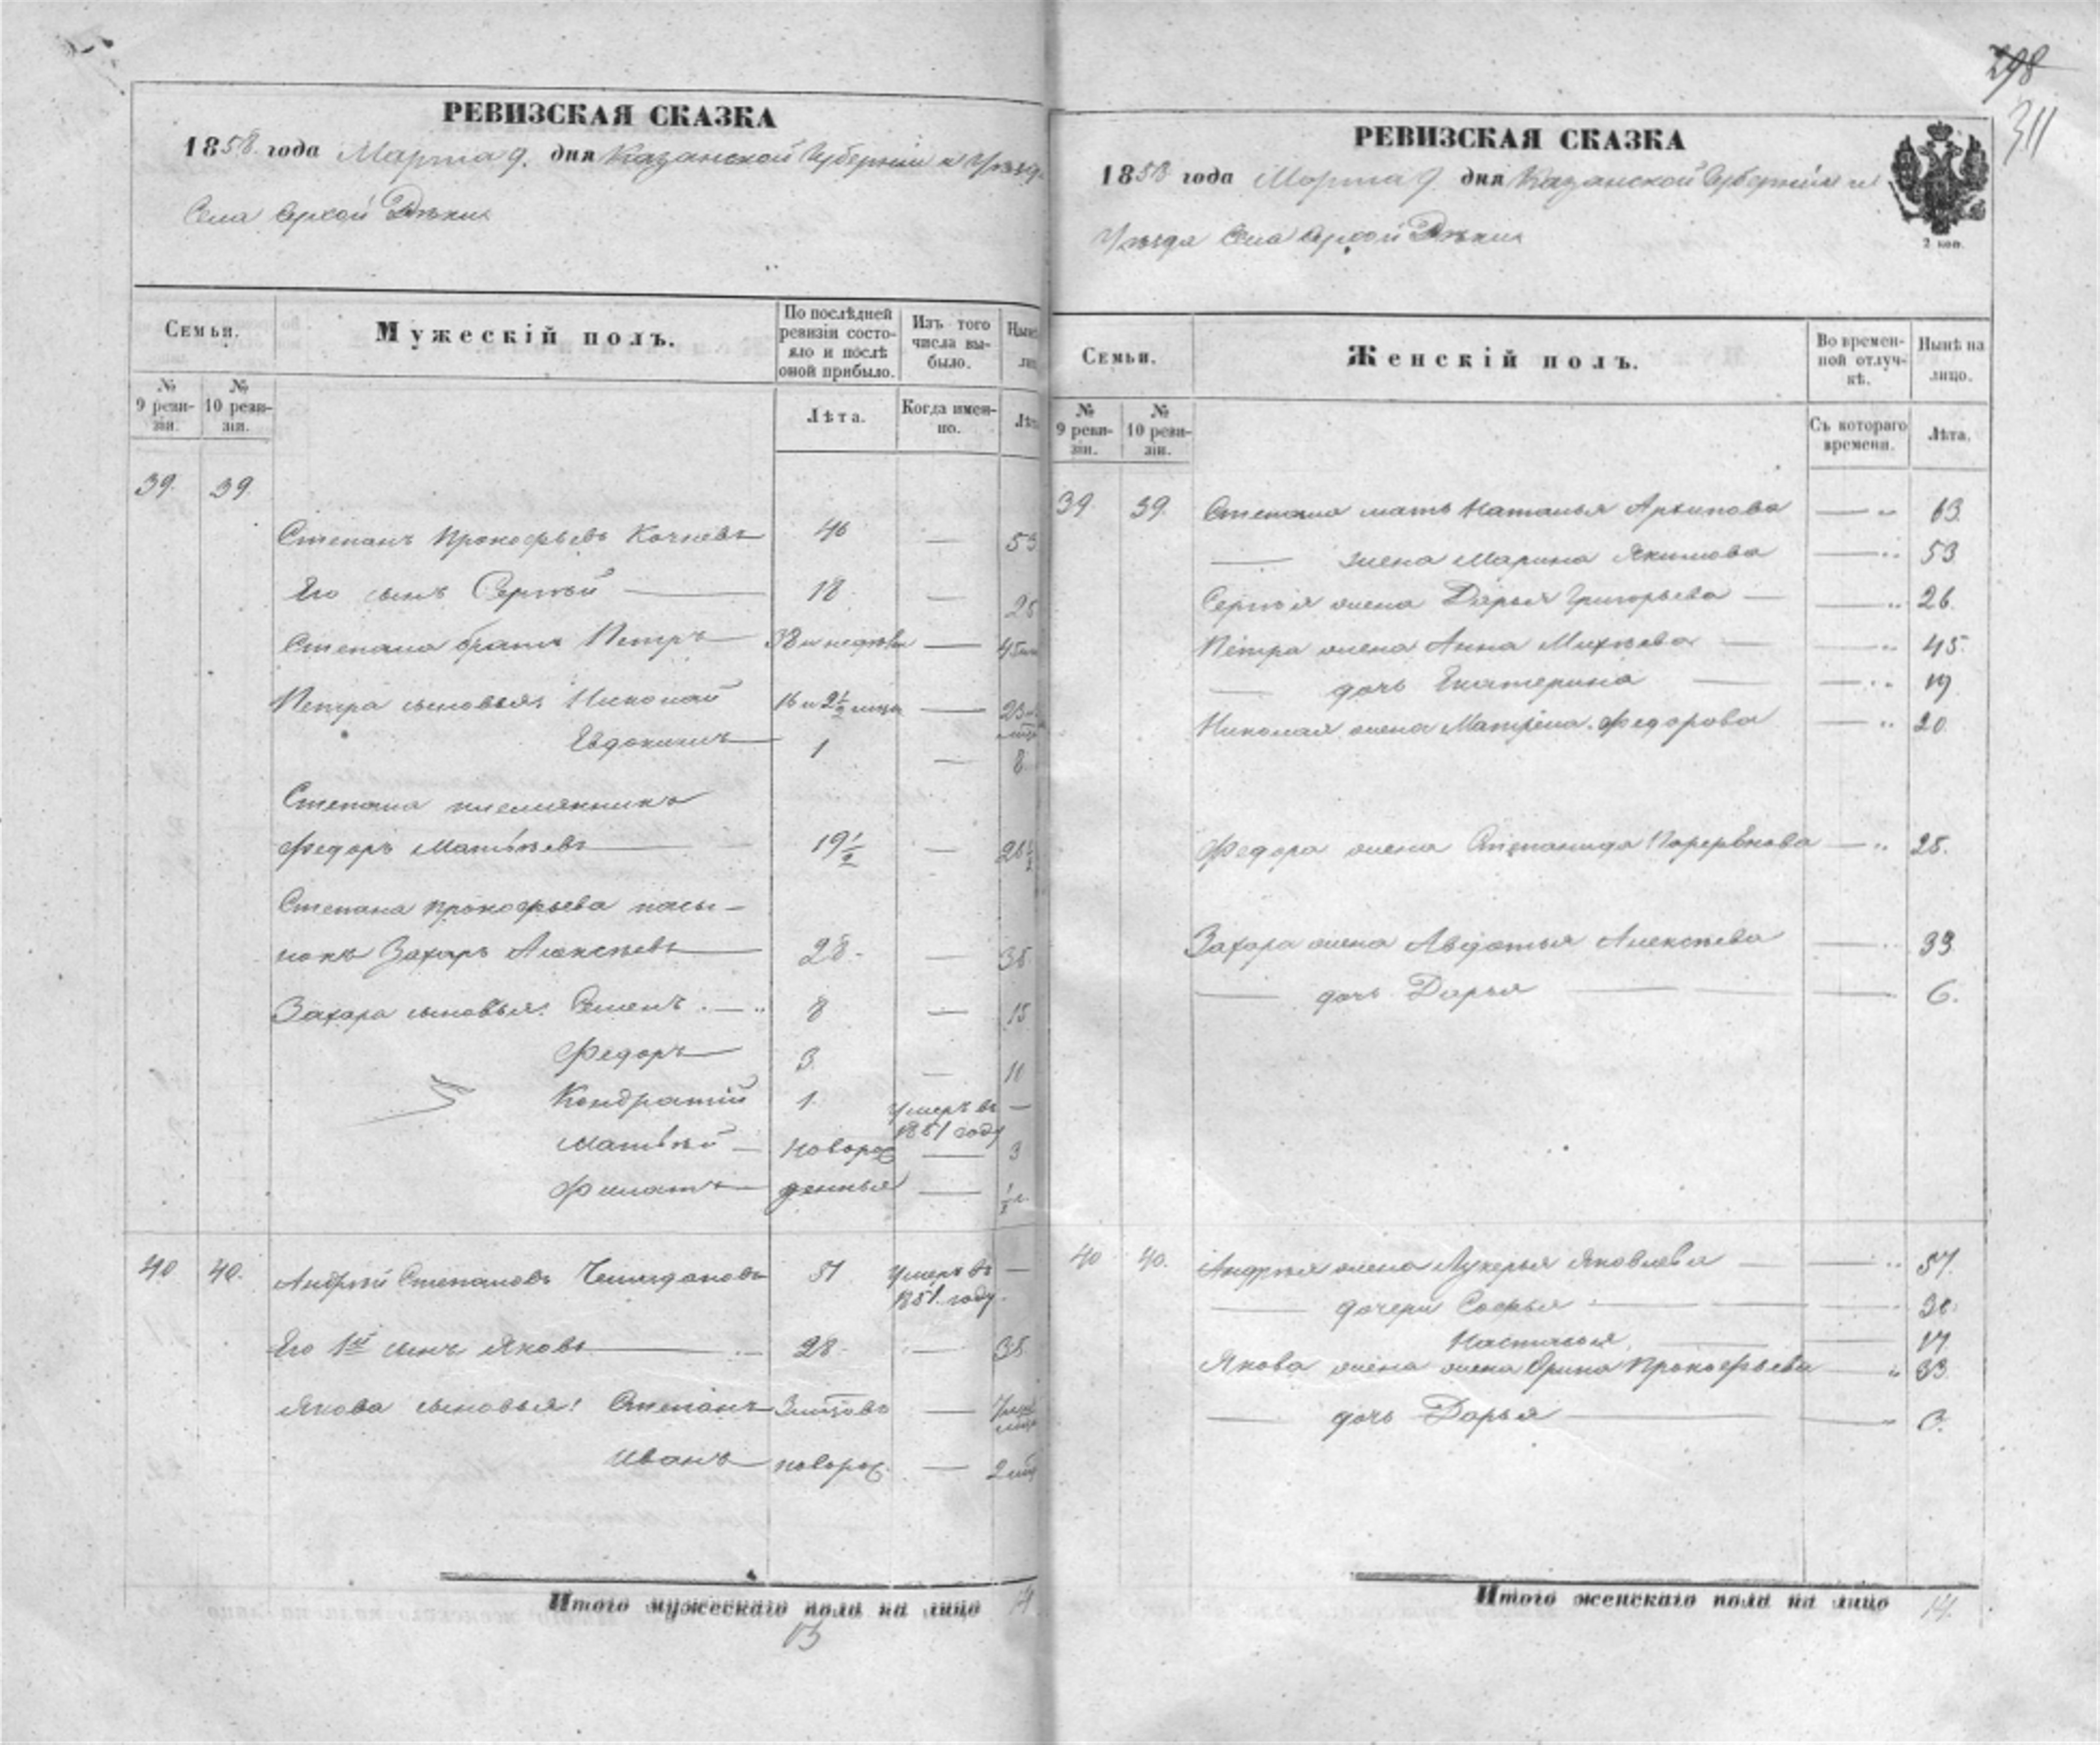 298
311
РЕВИЗСКАЯ СКАЗКА
1858 года Марта 9. дня Казанской Губерніи и Уѣзда
Села Сухой Рѣки
Семьи.
Мужескій полъ.
По послѣдней ревизіи состояло и послѣ оной прибыло.
Изъ того числа выбыло.
Нынѣ
№ 9 ревизіи.
№ 10 ревизіи.
Лѣта.
Когда именно.
Лѣта
39. 39.
Степанъ Прокофьевъ Кочневъ 46 — 53
Его сынъ Сергѣй — 18 — 25
Степана братъ Петръ — 38 — 45
Петра сыновья: Николай 16 и 2½ — 23
Евдокимъ — 1 — 8
Степана племянникъ
Федоръ Матвѣевъ — 19½ — 26½
Степана Прокофьева пасы-
нокъ Захаръ Алексѣевъ — 28 — 35
Захара сыновья: Семенъ — 8 — 15
Федоръ — 3 — 10
Кондратій 1. Умеръ въ 1851 году —
Матвѣй — новорож — 3
Филатъ — денныя — ½
40. 40. Андрей Степановъ Чемодановъ 51 Умеръ въ 1851 году. —
Его 1й сынъ Яковъ — 28 — 35
Якова сыновья: Степанъ — 7
Иванъ — новорож. — 2
Итого мужескаго пола на лицо
13
РЕВИЗСКАЯ СКАЗКА
1858 года Марта 9. дня Казанской Губерніи и
Уѣзда Села Сухой Рѣки
2 коп.
Семьи.
Женскій полъ.
Во временной отлучкѣ.
Нынѣ на лицо.
№ 9 ревизіи.
№ 10 ревизіи.
Съ котораго времени.
Лѣта.
39. 39. Степана мать Наталья Архипова — 63.
— жена Марина Якимова — 53
Сергѣя жена Дарья Григорьева — 26.
Петра жена Анна Михѣева — 45.
— дочь Екатерина — 19
Николая жена Матрена Федорова — 20.
Федора жена Степанида — 25.
Захара жена Авдотья Алексѣева — 33.
— дочь Дарья — 6.
40 40. Андрея жена Лукерья Яковлева — 57.
— дочери Софья — 30.
Настасья — 17.
Якова жена жена Орина Прокофьева — 33.
— дочь Дарья —
Итого женскаго пола на лицо 14.